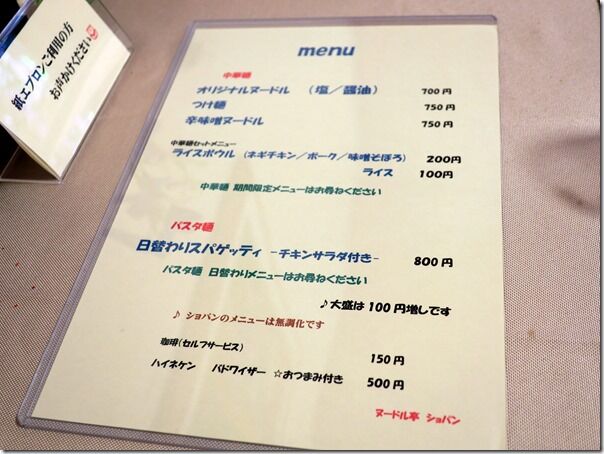 紙エプロンご利用の方
お声かけください
menu
中華麺
オリジナルヌードル （塩／醤油） 700円
つけ麺 750円
辛味噌ヌードル 750円
中華麺セットメニュー
ライスボウル（ネギチキン／ポーク／味噌そぼろ） 200円
ライス 100円
中華麺 期間限定メニューはお尋ねください
パスタ麺
日替わりスパゲッティ -チキンサラダ付き- 800円
パスタ麺 日替わりメニューはお尋ねください
♪大盛は100円増しです
♪ ショパンのメニューは無調化です
珈琲（セルフサービス） 150円
ハイネケン バドワイザー ☆おつまみ付き 500円
ヌードル亭 ショパン